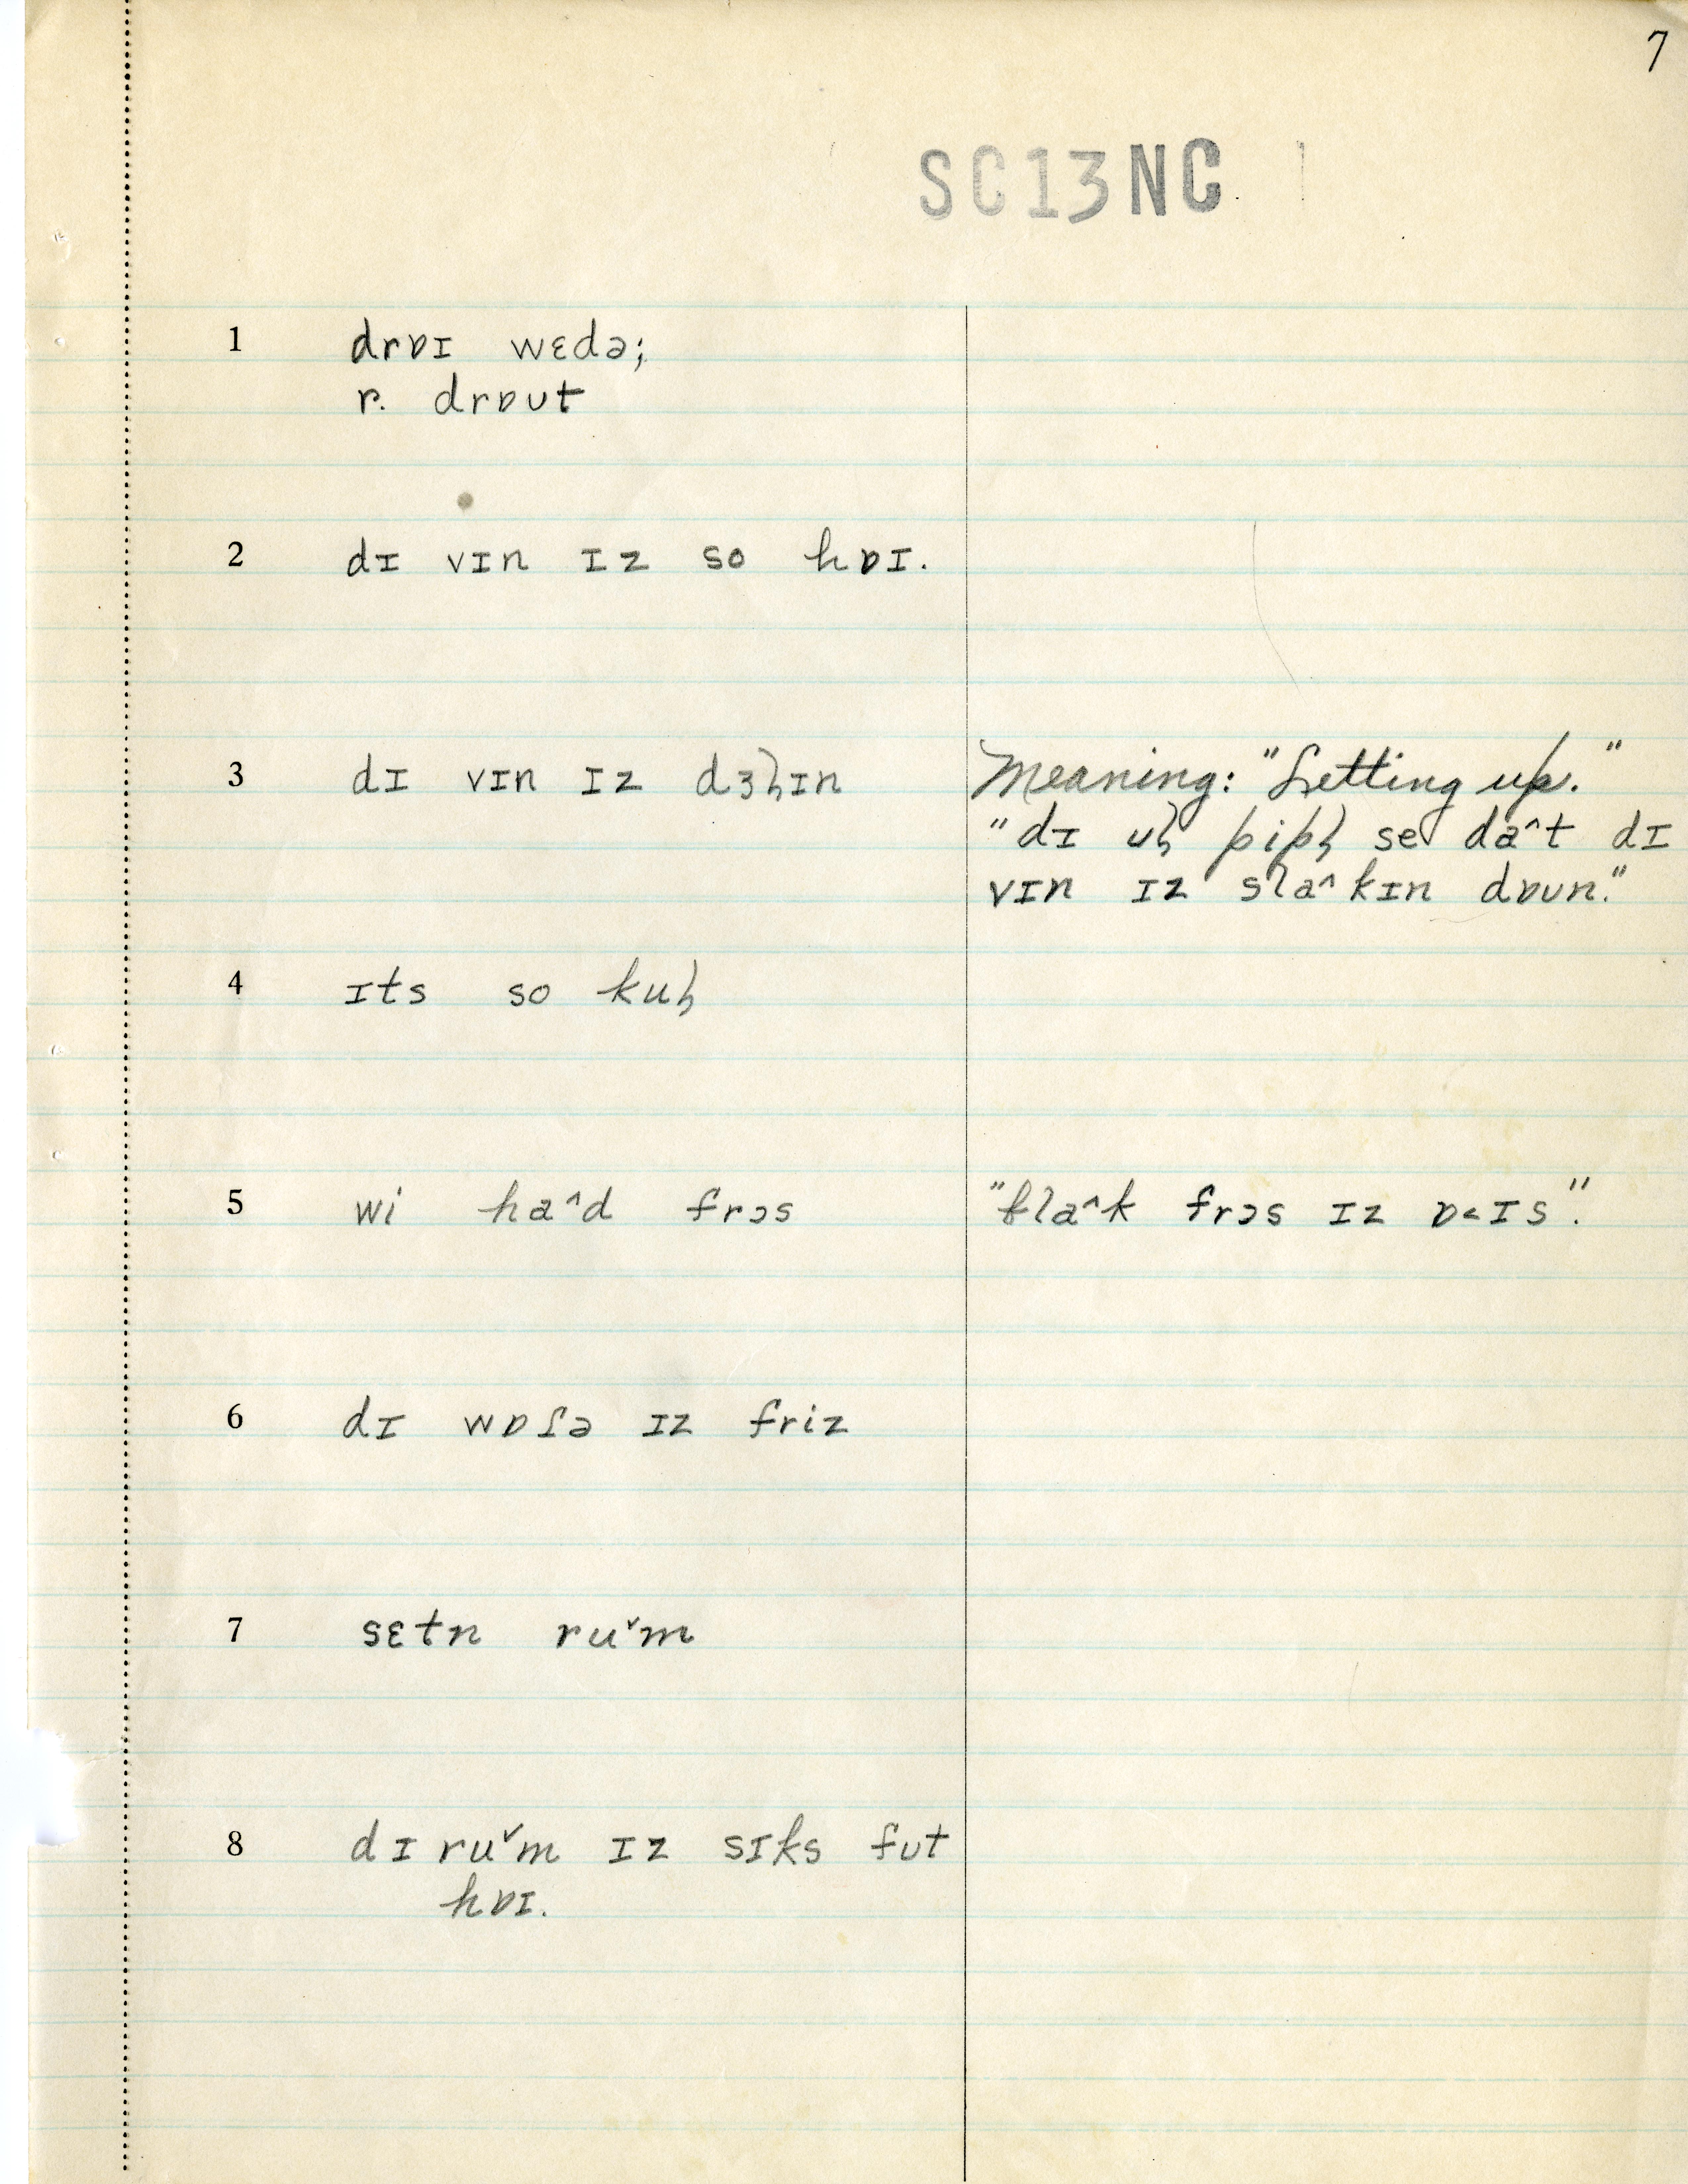 7
SC13NC
1 drɒɪ wɛdə;
r. drɒʊt
2 dɪ vɪn ɪz so hɒɪ.
3 dɪ vɪn ɪz dɜɫɪn
Meaning: "Letting up."
"dɪ ʊɫ pipɫ se daˆt dɪ
vɪn ɪz slaˆkɪn dɒʊn."
4 ɪts so kuɫ
5 wi haˆd frɔs
"blaˆk frɔs ɪz ɒ˂ɪs".
6 dɪ wɒɾə ɪz friz
7 sɛtn ruˇm
8 dɪ ruˇm ɪz sɪks fʊt
hɒɪ.